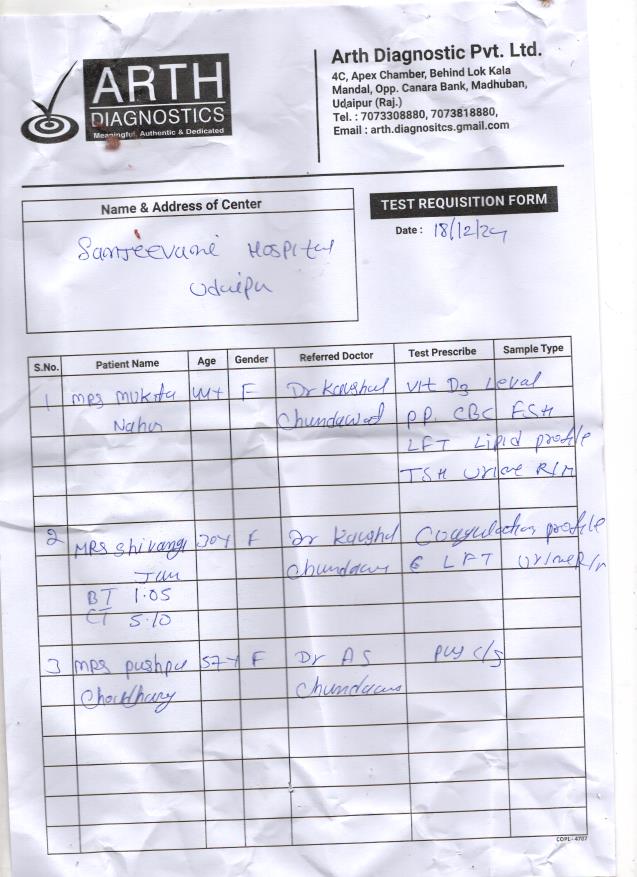 ARTH
DIAGNOSTICS
Meaningful, Authentic & Dedicated
Arth Diagnostic Pvt. Ltd.
4C, Apex Chamber, Behind Lok Kala
Mandal, Opp. Canara Bank, Madhuban,
Udaipur (Raj.)
Tel. : 7073308880, 7073818880,
Email : arth.diagnositcs.gmail.com
Name & Address of Center
Sanjeevani Hospital
Udaipu
TEST REQUISITION FORM
Date : 18/12/24
S.No. Patient Name Age Gender Referred Doctor Test Prescribe Sample Type
1 MRS Mukta F Dr Kaushal Vit D3 Leval
Chundawat PP. CBC FSH
LFT Lipid profile
TSH Urine R/M
2 MRS Shivangi 30Y F Dr Kaushal Coagulation profile
Jain Chundawa LFT Urine R/M
BT 1.05
CT 5.10
3 MRS Pushpa 57Y F Dr AS Pus C/S
Choudhary Chundawa
COPL- 4707